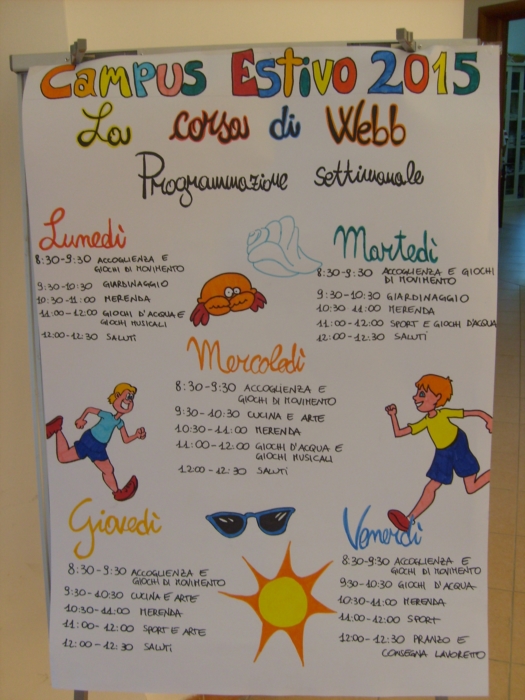 Campus Estivo 2015
La corsa di Webb
Programmazione settimanale
Lunedì
8:30-9:30 ACCOGLIENZA E
GIOCHI DI MOVIMENTO
9:30-10:30 GIARDINAGGIO
10:30-11:00 MERENDA
11:00-12:00 GIOCHI D'ACQUA E
GIOCHI MUSICALI
12:00-12:30 SALUTI
Martedì
8:30-9:30 ACCOGLIENZA E GIOCHI
DI MOVIMENTO
9:30-10:30 GIARDINAGGIO
10:30 11:00 MERENDA
11:00-12:00 SPORT E GIOCHI D'ACQUA
12:00-12:30 SALUTI
Mercoledì
8:30-9:30 ACCOGLIENZA E
GIOCHI DI MOVIMENTO
9:30-10:30 CUCINA E ARTE
10:30-11:00 MERENDA
11:00-12:00 GIOCHI D'ACQUA E
GIOCHI MUSICALI
12:00-12:30 SALUTI
Giovedì
8:30-9:30 ACCOGLIENZA E
GIOCHI DI MOVIMENTO
9:30-10:30 CUCINA E ARTE
10:30-11:00 MERENDA
11:00-12:00 SPORT E ARTE
12:00-12:30 SALUTI
Venerdì
8:30-9:30 ACCOGLIENZA E
GIOCHI DI MOVIMENTO
9:30-10:30 GIOCHI D'ACQUA
10:30-11:00 MERENDA
11:00-12:00 SPORT
12:00-12:30 PRANZO E
CONSEGNA LAVORETTO